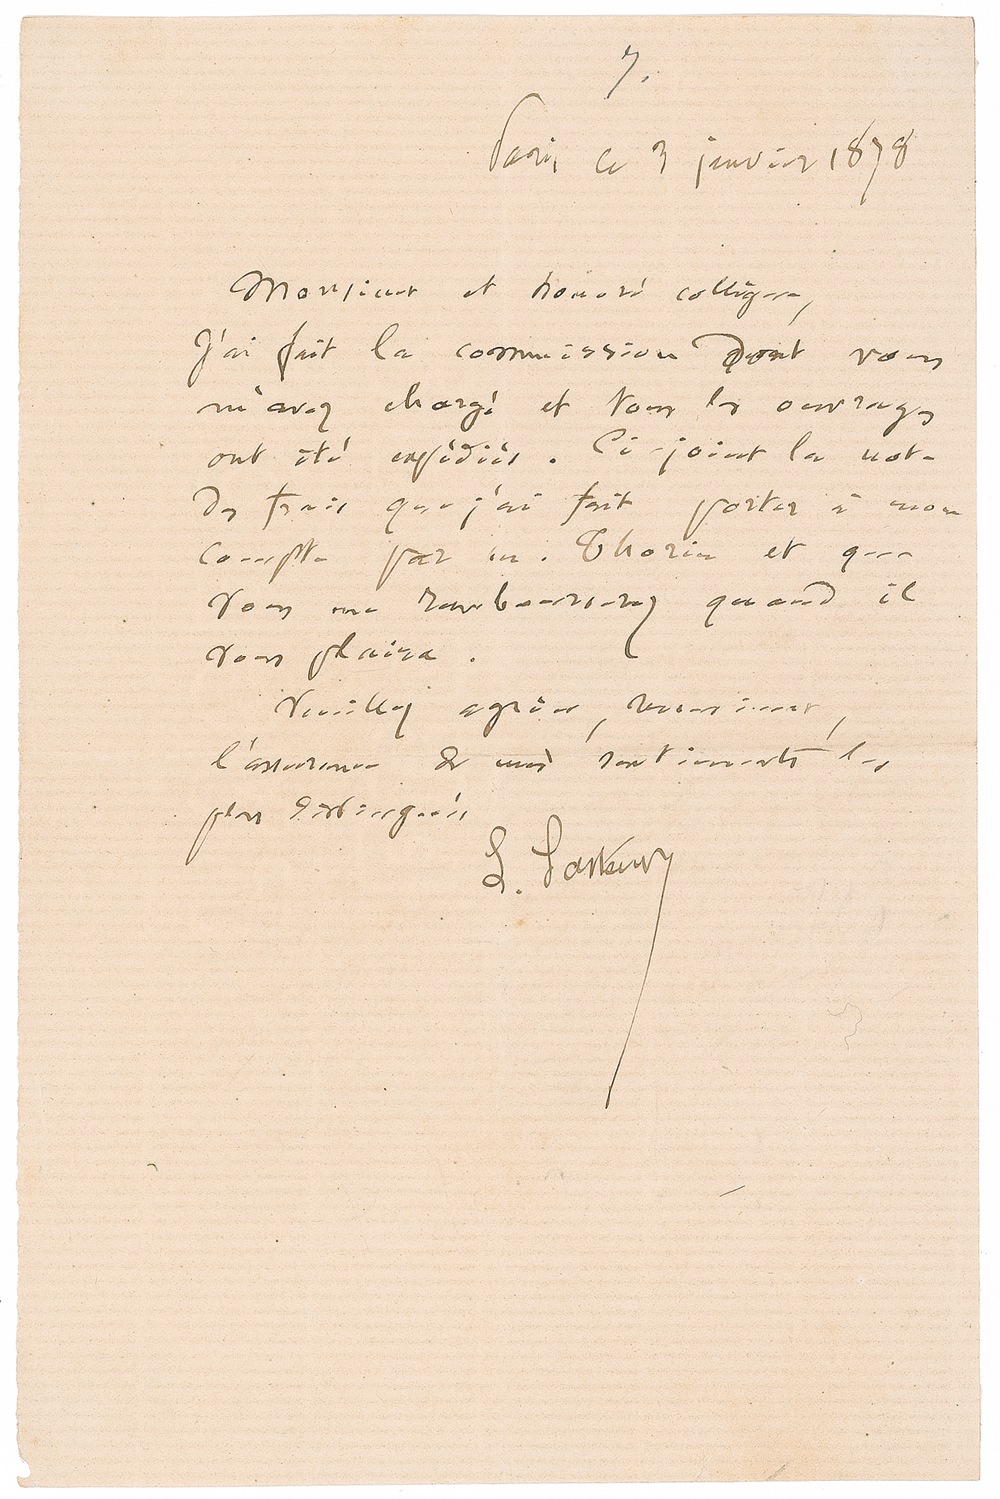 7.
Paris, ce 3 janvier 1878
Monsieur et honoré collègue,
J'ai fait la commission dont vous
m'avez chargé et tous les ouvrages
ont été expédiés. Ci-joint la note
des frais que j'ai fait porter à mon
compte par m. Thorin et que
vous me rembourserez quand il
vous plaira.
Veuillez agréer, monsieur,
l'assurance de mes sentiments les
plus distingués
L. Pasteur